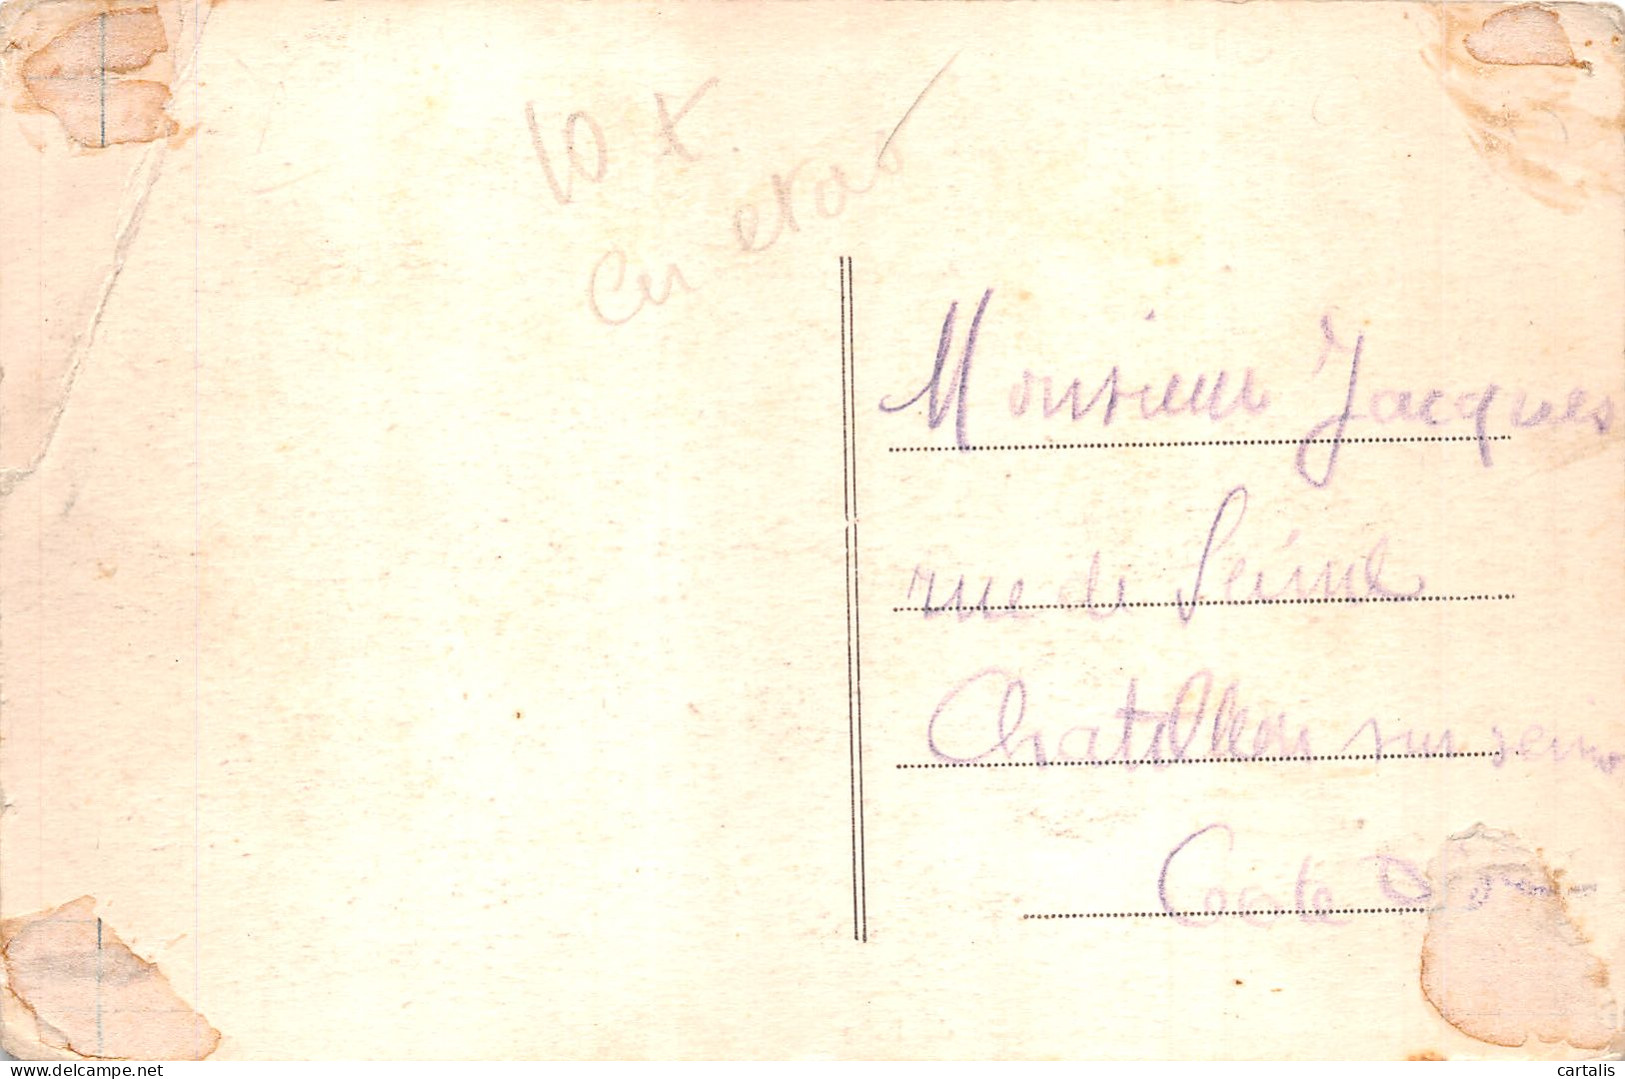 10 X
en etat
Monsieur Jacques
rue de Seine
Chatillon sur seine
Coote D'or
www.delcampe.net
cartalis